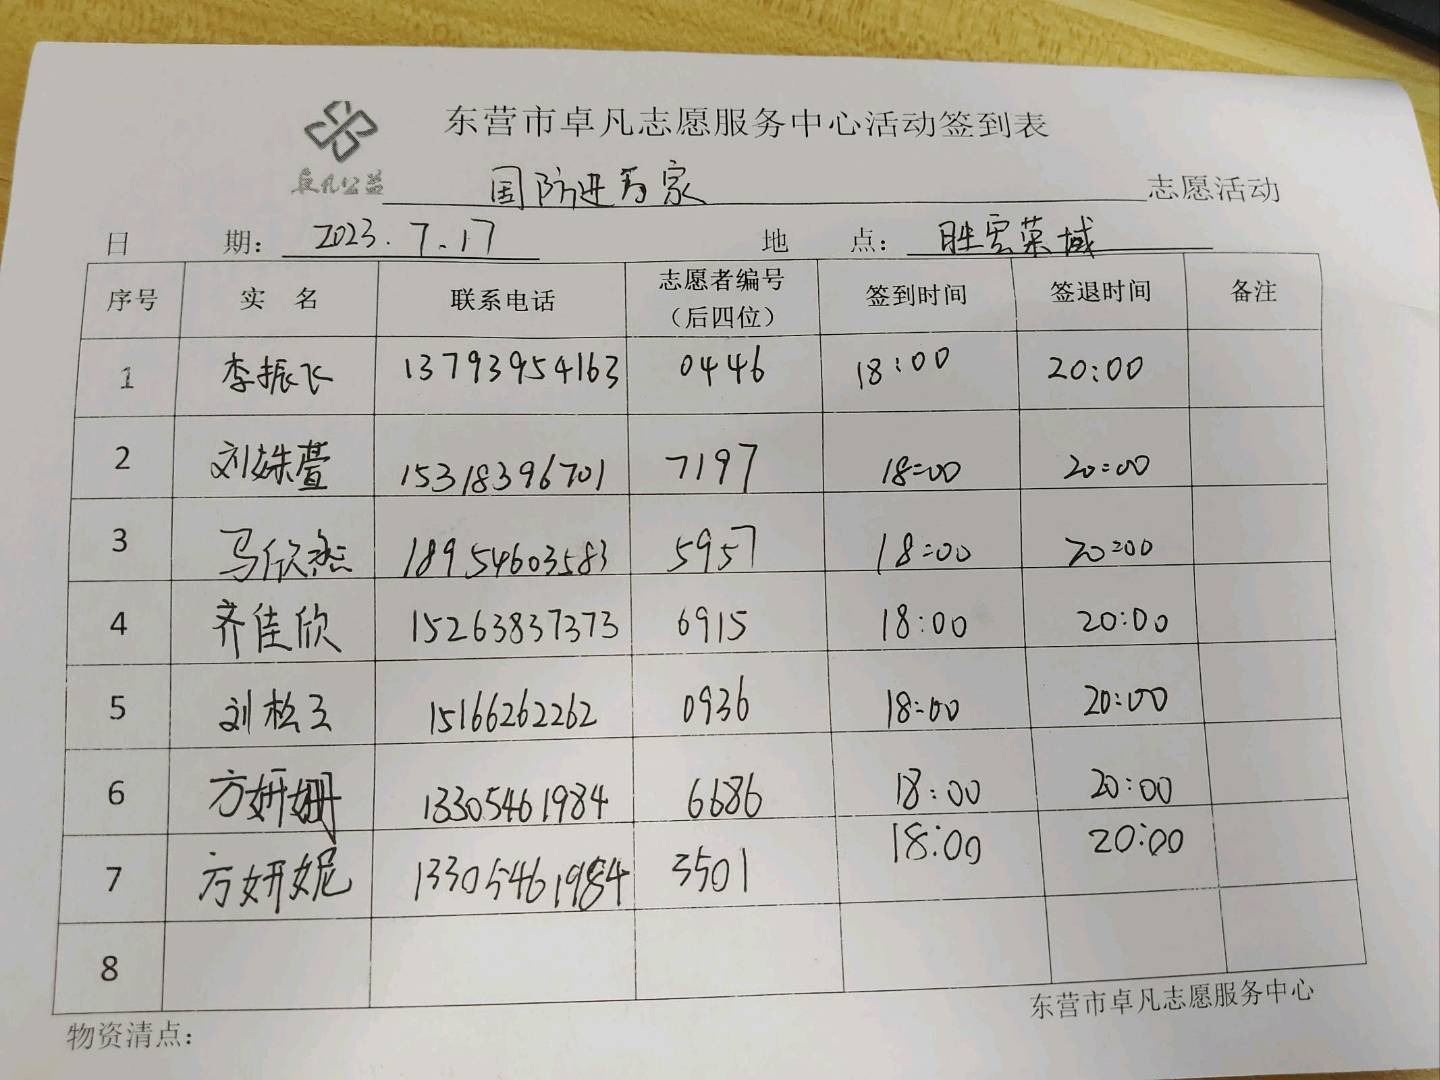 东营市卓凡志愿服务中心活动签到表
卓凡公益 国防进万家 志愿活动
日 期： 2023.7.17 地 点： 胜宏荣域
序号 实 名 联系电话 志愿者编号（后四位） 签到时间 签退时间 备注
1 李振飞 13793954163 0446 18:00 20:00
2 刘姝萱 15318396701 7197 18:00 20:00
3 马欣然 18954603583 5957 18:00 20:00
4 齐佳欣 15263837373 6915 18:00 20:00
5 刘松玉 15166262262 0936 18:00 20:00
6 方妍姗 13305461984 6686 18:00 20:00
7 方妍妮 13305461984 3501 18:00 20:00
8
东营市卓凡志愿服务中心
物资清点：